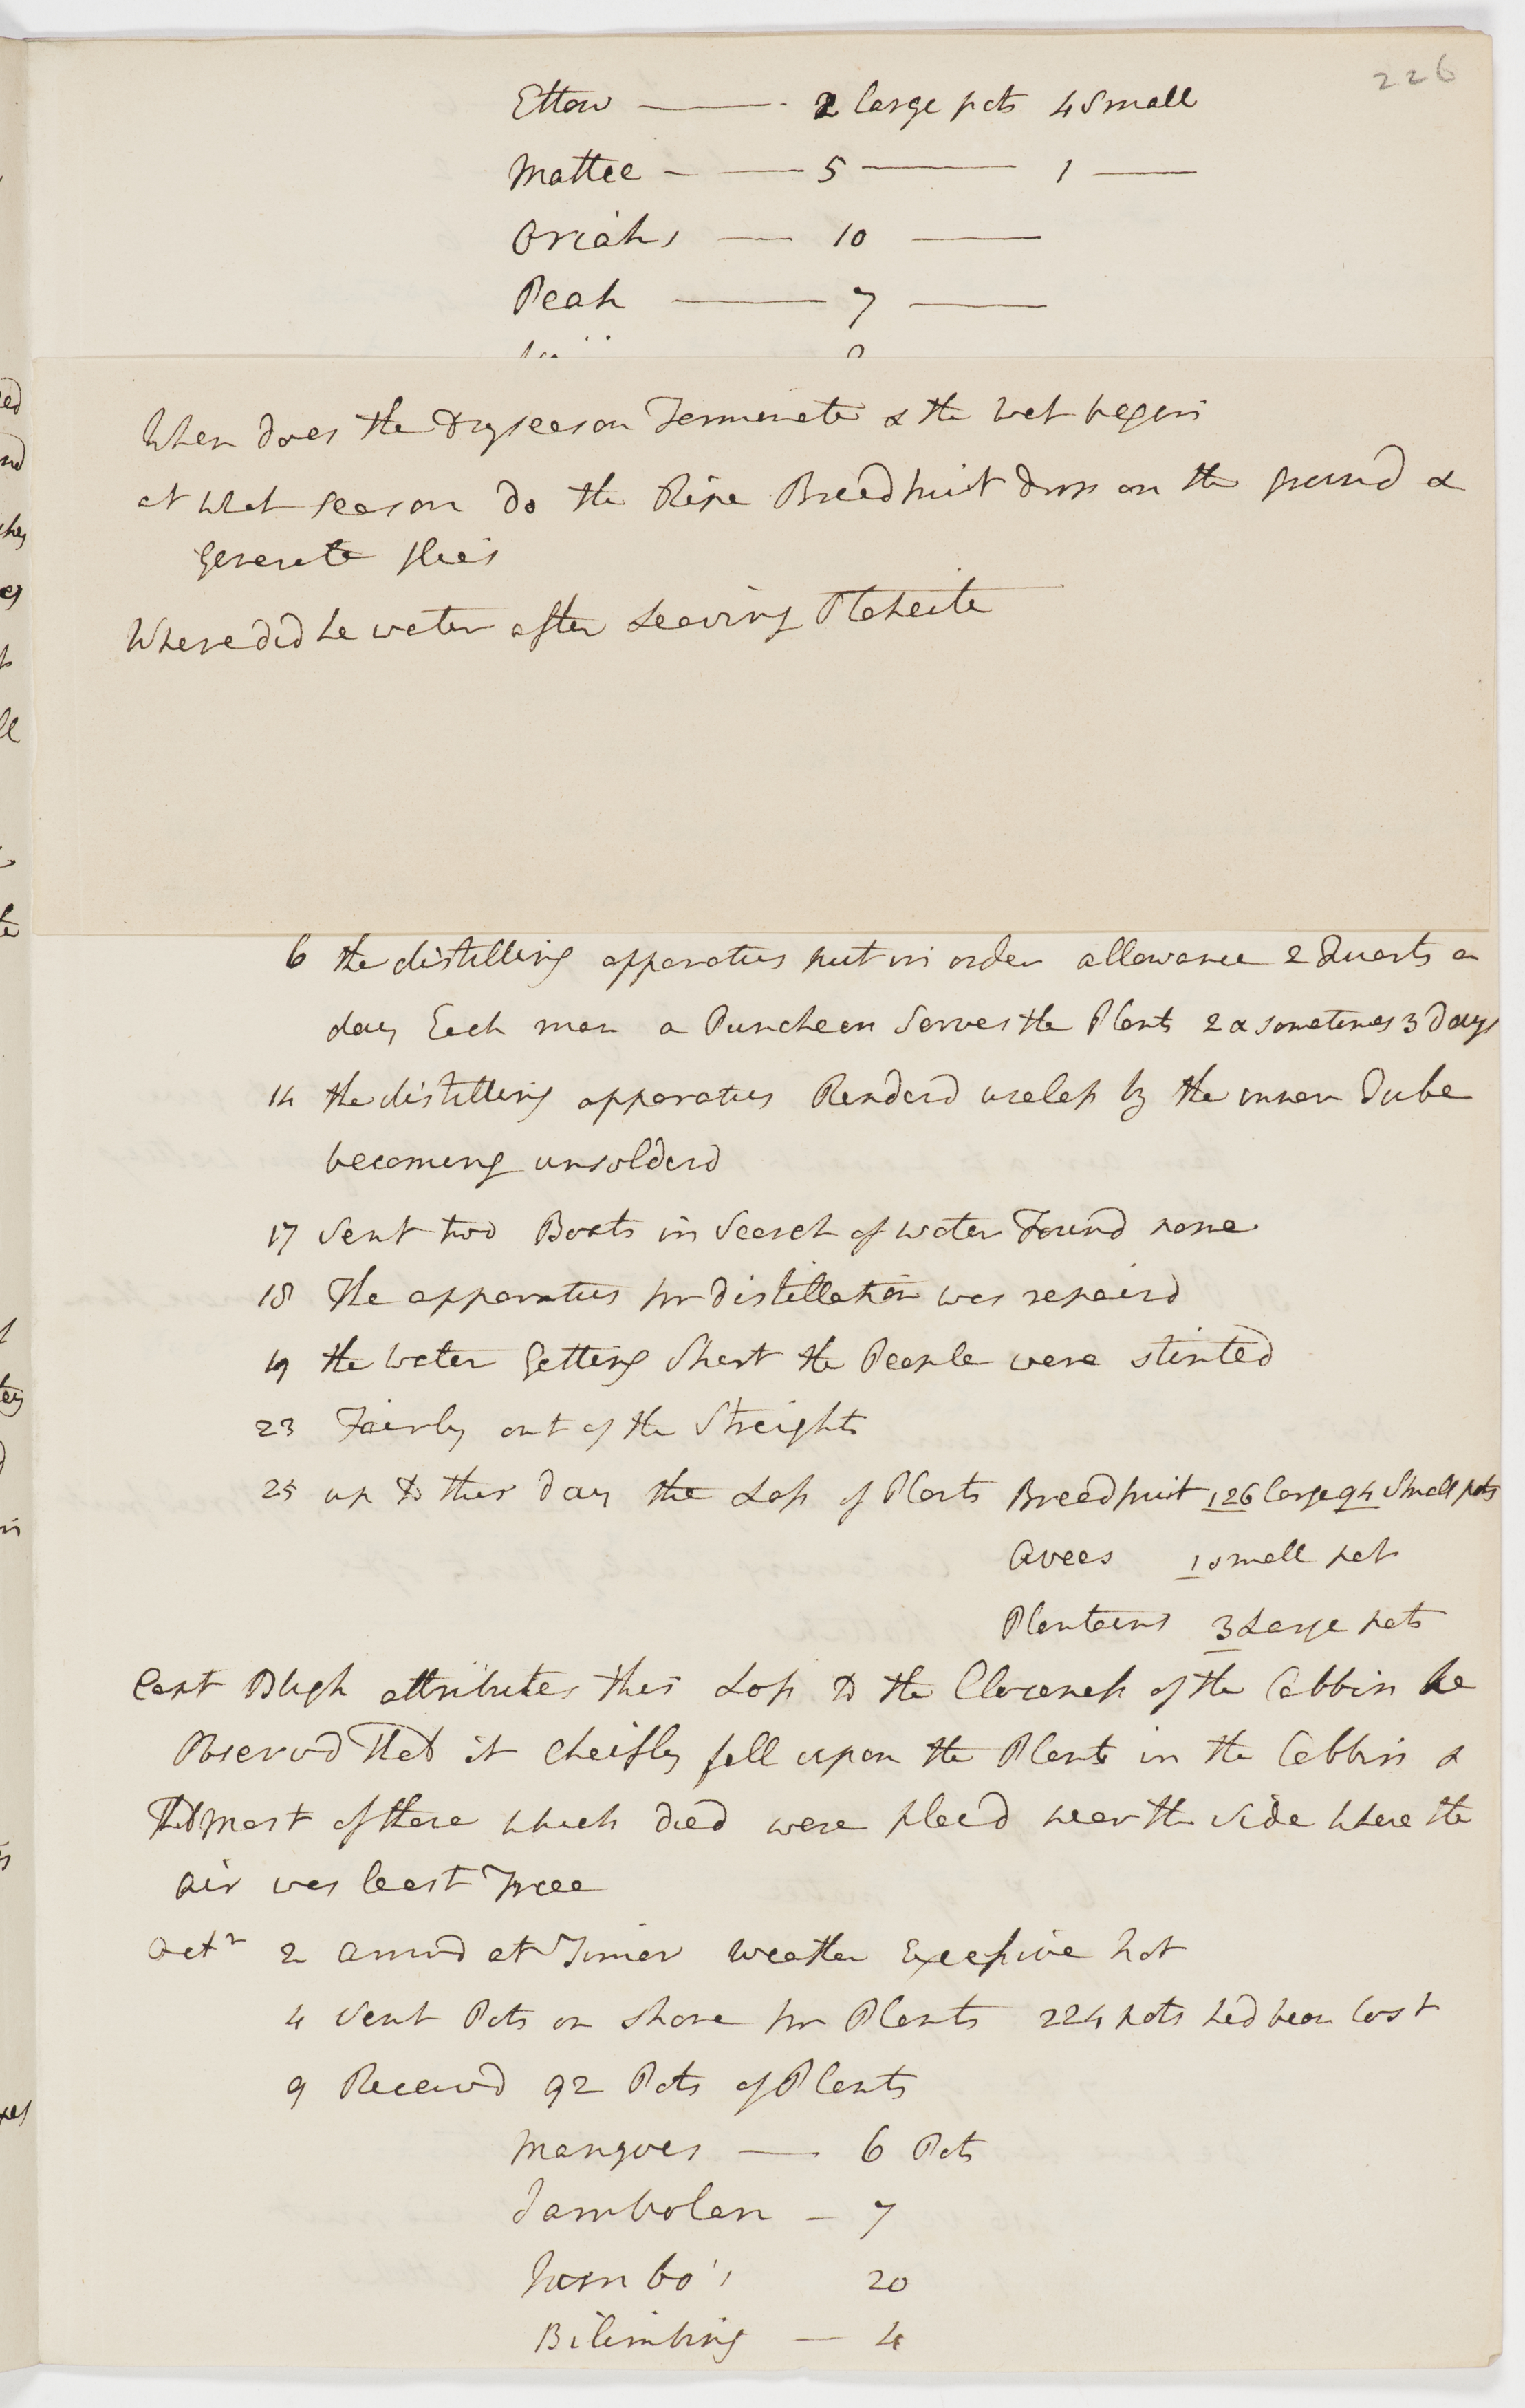 226
Ettow —— 2 large pots 4 Small
Mattee — — 5 —— 1 —
Oriahs — 10 —
Peah —— 7 —
When does the dry season Terminate & the wet begin
at what season do the Ripe Breadfruit drop on the ground &
Generate flies
Where did he water after Leaving Otaheite
6 the distilling apparatus put in order allowance 2 Quarts a
day Each man a Puncheon Serves the Plants 2 & sometimes 3 days
14 the distilling apparatus Renderd useless by the inner Tube
becoming unsolderd
17 Sent two Boats in Search of water Found none
18 The apparatus for distillation was repaird
19 the water Getting Short the People were stinted
23 Fairly out of the Streights
25 up to this day the Loss of Plants Breadfruit 126 large 94 Small pots
Avees 1 small pot
Plantains 3 Large pots
Capt Bligh attributes this Loss to the Closeness of the Cabbin he
Observd That it cheifly fell upon the Plants in the Cabbin &
That most of those which died were placd near the side where the
air was least Free
Octr 2 arrivd at Timor weather Excessive hot
4 Sent Pots on shore for Plants 224 pots had been lost
9 Receivd 92 Pots of Plants
Mangoes — 6 Pots
Jambolan — 7
Jambo's 20
Bilimbing — 4